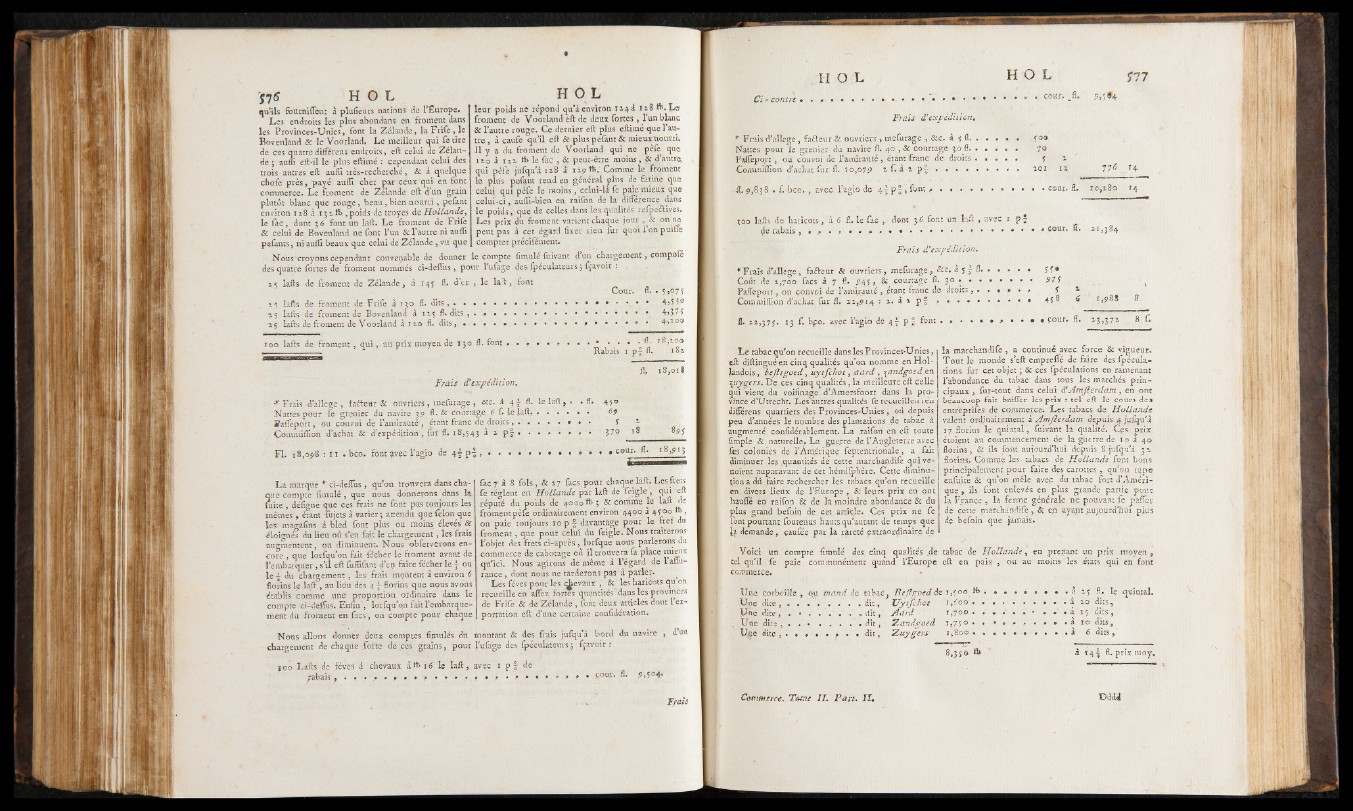 576 HOL HOL
qu'ils fourniſſent à pluſieurs nations de l'Europe.
Les endroits les plus abondans en froment dans
les Provinces-Unies, ſont la Zélande, la Friſe, le
Bovenland & le Voorland. Le meilleur qui ſe tire
de ces quatre différens endroits, eſt celui de Zélan-
de ; auſſi eſt-il le plus eſtimé : cependant celui des
trois autres eſt auſſi très-recherché, & à quelque
choſe près, payé auſſi cher par ceux qui en font
commerce. Le froment de Zélande eſt d'un grain
plutôt blanc que rouge, beau, bien nourri, peſant
environ 128 à 132 ℔, poids de troyes de Hollande,
le ſac, dont 36 font un laſt. Le froment de Friſe
& celui de Bovenland ne ſont l'un & l'autre ni auſſi
peſants, ni auſſi beaux que celui de Zélande, vû que
leur poids ne répond qu'à environ 124 à 128 ℔. Le
froment de Voorland eſt de deux ſortes, l'un blanc
& l'autre rouge. Ce dernier eſt plus eſtimé que l'au-
tre, à cauſe qu'il eſt & plus peſant & mieux nourri.
Il y a du froment de Voorland qui ne péſe que
120 à 122 ℔ le ſac, & peut-être moins, & d'autre
qui péſe juſqu'à 128 à 129 ℔. Comme le froment
le plus peſant rend en général plus de farine que
celui qui péſe le moins, celui-là ſe paie mieux que
celui-ci, auſſi-bien en raiſon de la différence dans
le poids, que de celles dans les qualités reſpectives.
Les prix du froment varient chaque jour, & on ne
peut pas à cet égard fixer rien ſur quoi l'on puiſſe
compter préciſément.
Nous croyons cependant convenable de donner le compte ſimulé ſuivant d'un chargement, compoſé
des quatre ſortes de froment nommés ci-deſſus, pour l'uſage des ſpéculateurs ; ſçavoir :
25 laſts de froment de Zélande, à 145 fl. d'or, le laſt, font
Cour. fl. . 5,075
25 laſts de froment de Friſe à 130 fl. dits, . . . 4,550
25 laſts de froment de Bovenland à 125 fl. dits, . . . 4,375
25 laſts de froment de Voorland à 120 fl. dits, . . . 4,200
100 laſts de froment, qui, au prix moyen de 130 fl. font . . . fl. 18,200
Rabais 1 p° fl. 182
fl. 18,018
Frais d'expédition.
* Frais d'allege, facteur & ouvriers, meſurage, &c. à 4½ fl. le laſt, . . fl. 450
Nattes pour le grenier du navire 39 fl. & courtage 6 ſ. le laſt, . . . 69
Paſſeport, ou convoi de l'amirauté, étant franc de droits, . . . 5 2
Commiſſion d'achat & d'expédition, ſur fl. 18,543 à 2 p° . . . 370 18 895
Fl. 18,098 : 11 . bco. font avec l'agio de 4½ p°, . . . cour. fl. 18,913
La marque * ci-deſſus, qu'on trouvera dans cha-
que compte ſimulé, que nous donnerons dans la
ſuite, déſigne que ces frais ne ſont pas toujours les
mêmes, étant ſujets à varier ; attendu que ſelon que
les magaſins à bled ſont plus ou moins élevés &
éloignés du lieu où s'en fait le chargement, les frais
augmentent, ou diminuent. Nous obſerverons en-
core, que lorſqu'on fait ſécher le froment avant de
l'embarquer, s'il eſt ſuffiſant d'en faire ſécher le ⅓ ou
le ¼ du chargement, les frais montent à environ 6
florins le laſt, au lieu des 4½ florins que nous avons
établis comme une proportion ordinaire dans le
compte ci-deſſus. Enfin, lorſqu'on fait l'embarque-
ment du froment en ſacs, on compte pour chaque
ſac 7 à 8 ſols, & 27 ſacs pour chaque laſt. Les frets
ſe réglent en Hollande par laſt de ſeigle, qui eſt
réputé du poids de 4000 ℔ ; & comme le laſt de
froment péſe ordinairement environ 4400 à 4500 ℔,
on paie toujours 10 p° davantage pour le fret du
froment, que pour celui du ſeigle. Nous traiterons
l'objet des frets ci-après, lorſque nous parlerons du
commerce de cabotage où il trouvera ſa place mieux
qu'ici. Nous agirons de même à l'égard de l'aſſu-
rance, dont nous ne tarderons pas à parler.
Les féves pour les chevaux, & les haricots qu'on
recueille en aſſez fortes quantités dans les provinces
de Friſe & de Zélande, ſont deux articles dont l'ex-
portation eſt d'une certaine conſidération.
Nous allons donner deux comptes ſimulés du montant & des frais juſqu'à bord du navire, d'un
chargement de chaque ſorte de ces grains, pour l'uſage des ſpéculateurs ; ſçavoir :
100 Laſts de féves à chevaux à ℔ 16 le laſt, avec 1 p° de
rabais, . . . cour. fl. 9,504.
Frais
HOL HOL 577
Ci-contre . . . cour. fl. 9,504
Frais d'expédition.
* Frais d'allege, facteur & ouvriers, meſurage, &c. à 5 fl. . . . 500
Nattes pour le grenier du navire fl. 40, & courtage 30 fl. . . . 70
Paſſeport, ou convoi de l'amirauté, étant franc de droits . . . 5 2
Commiſſion d'achat ſur fl. 10,079 2 ſ. à 2 p° . . . 201 12 776 14
fl. 9,838 . ſ. bco., avec l'agio de 4½ p°, font . . . cour. fl. 10,280 14
100 laſts de haricots, à 6 fl. le ſac, dont 36 font un laſt, avec 1 p°
de rabais, . . . cour. fl. 21,384
Frais d'expédition.
* Frais d'allege, facteur & ouvriers, meſurage, &c. à 5½ fl. . . . 550
Coût de 2,700 ſacs à 7 fl. 945, & courtage fl. 30 . . . 975
Paſſeport, ou convoi de l'amirauté, étant franc de droits, . . . 5 2
Commiſſion d'achat ſur fl. 22,914 : 2. à 2 p° . . . 458 6 1,988 8
fl. 22,375. 13 ſ. bco. avec l'agio de 4½ p° font . . . cour. fl. 23,372 8 ſ.
Le tabac qu'on recueille dans les Provinces-Unies,
eſt diſtingué en cinq qualités qu'on nomme en Hol-
landois, beſtgoed, uytſchot, aard, zandgoed en
zuygers. De ces cinq qualités, la meilleure eſt celle
qui vient du voiſinage d'Amersfoort dans la pro-
vince d'Utrecht. Les autres qualités ſe recueillent en
différens quartiers des Provinces-Unies, où depuis
peu d'années le nombre des plantations de tabac à
augmenté conſidérablement. La raiſon en eſt toute
ſimple & naturelle. La guerre de l'Angleterre avec
ſes colonies de l'Amérique ſeptentrionale, a fait
diminuer les quantités de cette marchandiſe qui ve-
noient auparavant de cet hémiſphére. Cette diminu-
tion a dû faire rechercher les tabacs qu'on recueille
en divers lieux de l'Europe, & leurs prix en ont
hauſſé en raiſon & de la moindre abondance & du
plus grand beſoin de cet article. Ces prix ne ſe
ſont pourtant ſoutenus hauts qu'autant de temps que
la demande, cauſée par la rareté extraordinaire de
la marchandiſe, a continué avec force & vigueur.
Tout le monde s'eſt empreſſé de faire des ſpécula-
tions ſur cet objet ; & ces ſpéculations en ramenant
l'abondance du tabac dans tous les marchés prin-
cipaux, ſur-tout dans celui d'Amſterdam, en ont
beaucoup fait baiſſer les prix : tel eſt le cours des
entrepriſes de commerce. Les tabacs de Hollande
valent ordinairement à Amſterdam depuis 4 juſqu'à
17 florins le quintal, ſuivant la qualité. Ces prix
étoient au commencement de la guerre de 10 à 40
florins, & ils ſont aujourd'hui depuis 8 juſqu'à 32
florins. Comme les tabacs de Hollande ſont bons
principalement pour faire des carottes, qu'on rape
enſuite & qu'on mêle avec du tabac fort d'Améri-
que, ils ſont enlevés en plus grande partie pour
la France, la ferme générale ne pouvant ſe paſſer
de cette marchandiſe, & en ayant aujourd'hui plus
de beſoin que jamais.
Voici un compte ſimulé des cinq qualités de tabac de Hollande, en prenant un prix moyen,
tel qu'il ſe paie communément quand l'Europe eſt en paix, ou au moins les états qui en font
commerce.
Une corbeille, ou mand de tabac, Beſtgoed de 1,500 ℔ . . . à 25 fl. le quintal.
Une dite, . . . dit, Uytſchot 1,600 . . . à 20 dits,
Une dite, . . . dit, Aard 1,700 . . . à 15 dits,
Une dite, . . . dit, Zandgoed 1,750 . . . à 10 dits,
Une dite, . . . dit, Zuygers 1,800 . . . à 6 dits,
8,350 ℔ à 14¾ fl. prix moy.
Commerce. Tome II. Part. II. Dddd